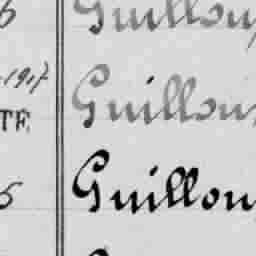 6 Guillou
1917 Guillou
TE
5 Guillou